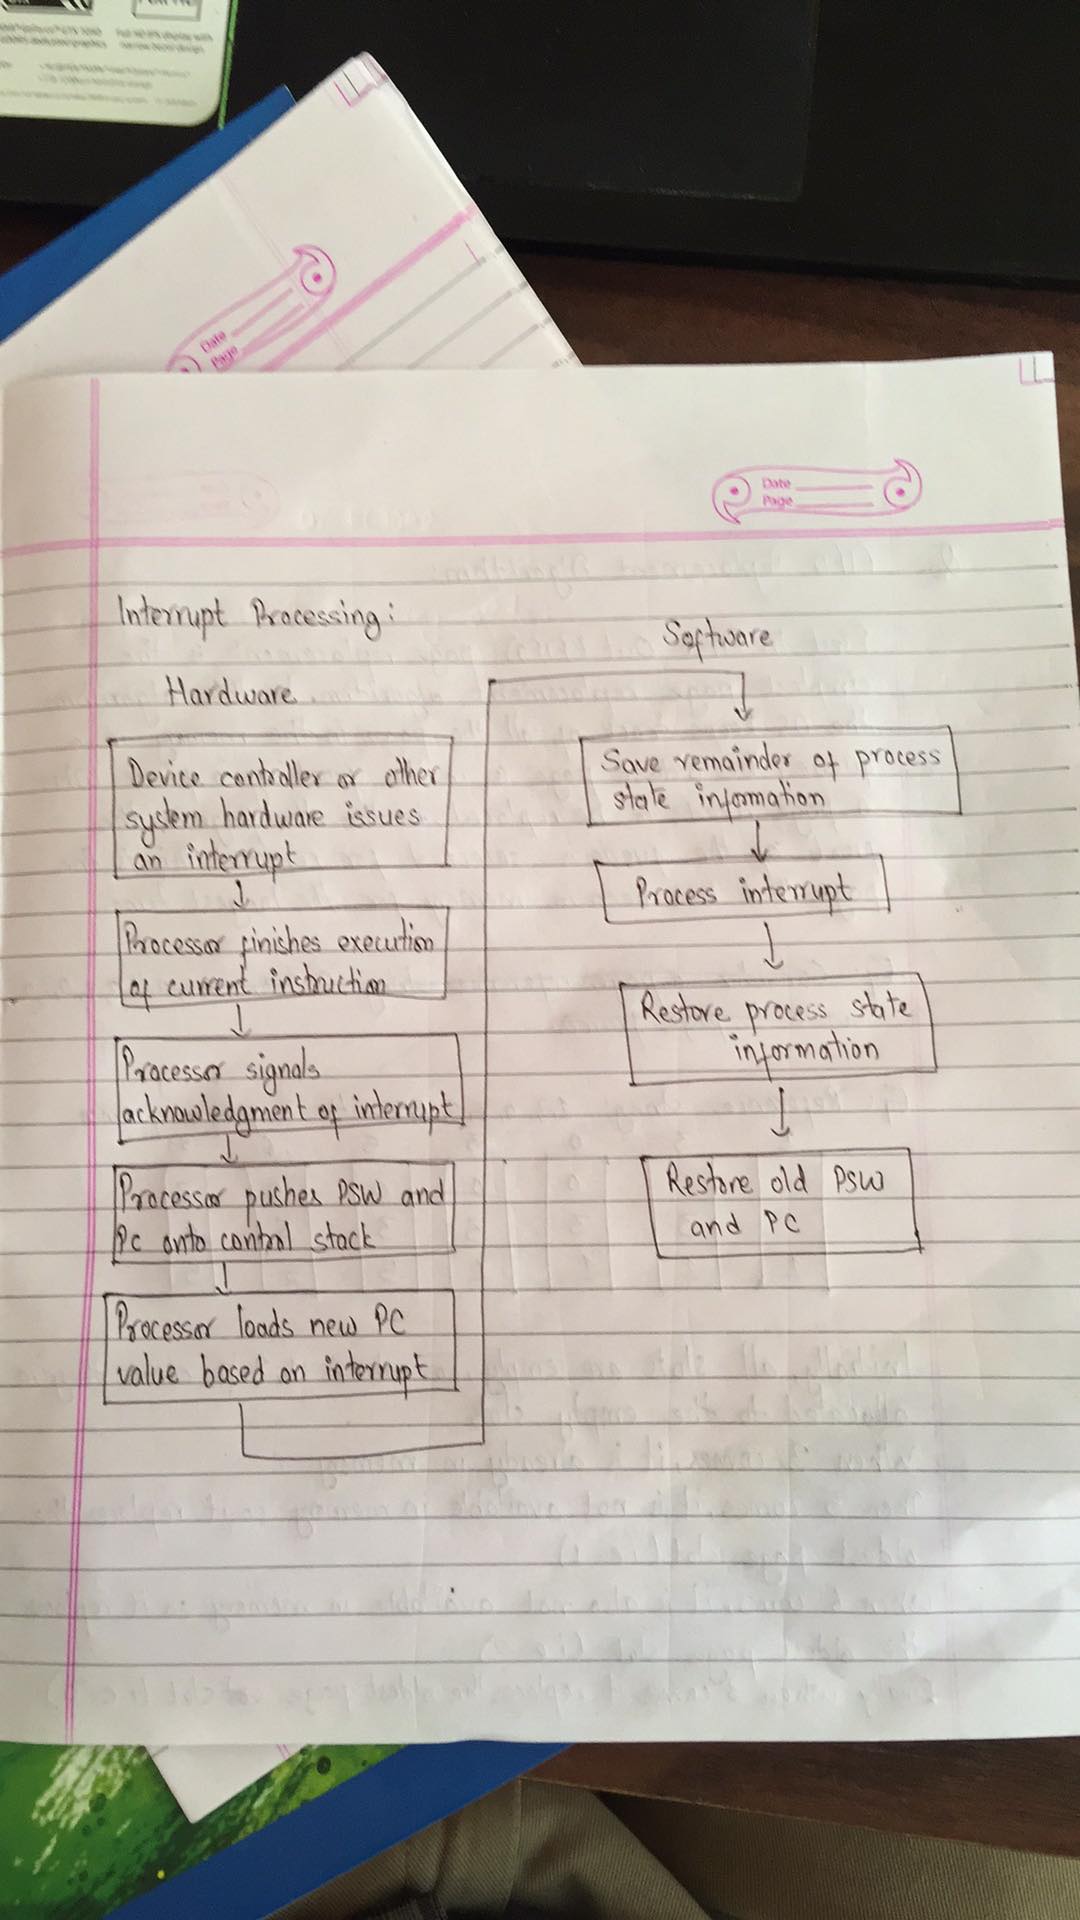 Date
Page
Date
Page
Interrupt Processing:
Software
Hardware
Device controller or other
system hardware issues
an interrupt
Processor finishes execution
of current instruction
Processor signals
acknowledgment of interrupt
Processor pushes PSW and
PC onto control stack
Processor loads new PC
value based on interrupt
Save remainder of process
state information
Process interrupt
Restore process state
information
Restore old PSW
and PC